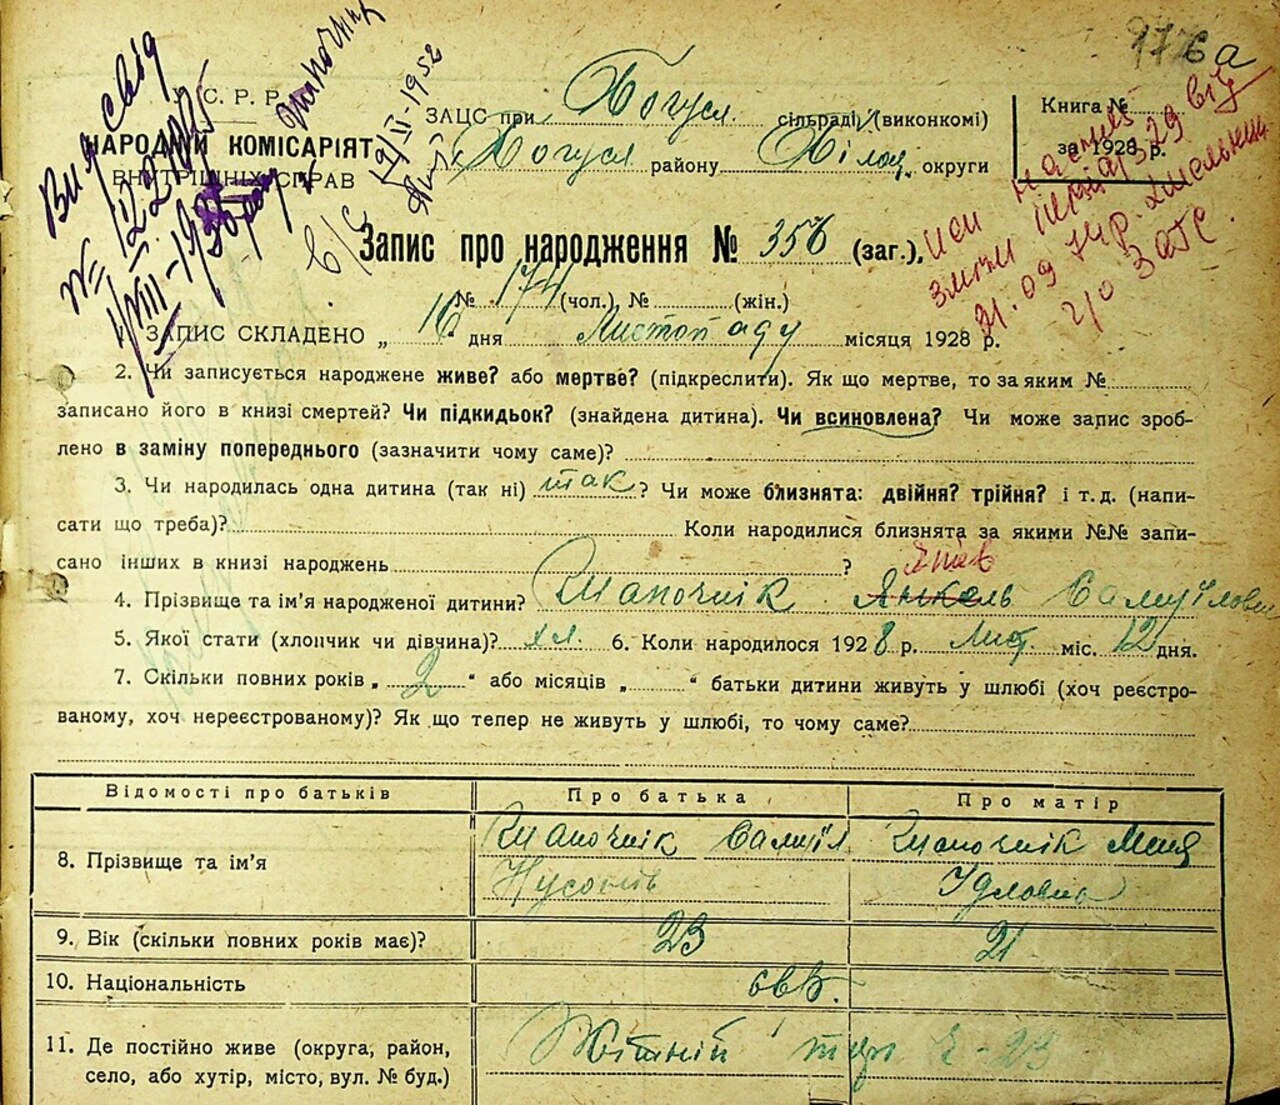 6 а
С. Р. Р.
НАРОДНІЙ КОМІСАРІЯТ
ВНУТРІШНІХ СПРАВ
Вид свід
№
VIII-1935
19/II-1952
ЗАЦС при Богусл. сільраді (виконкомі)
Богусл району Білоц. округи
Книга №
за 1928 р.
Запис про народження № 356 (заг.),
№ 174 (чол.), № (жін.)
ЗАПИС СКЛАДЕНО „ 16 " дня Листопаду місяця 1928 р.
31.09 74 р.
ЗАГС
2. Чи записується народжене живе? або мертве? (підкреслити). Як що мертве, то за яким №
записано його в книзі смертей? Чи підкидьок? (знайдена дитина). Чи всиновлена? Чи може запис зроб-
лено в заміну попереднього (зазначити чому саме)?
3. Чи народилась одна дитина (так ні) так ? Чи може близнята: двійня? трійня? і т. д. (напи-
сати що треба)? Коли народилися близнята за якими №№ запи-
сано інших в книзі народжень ?
4. Прізвище та ім'я народженої дитини? Шапочнік Янкель Самуїлович
5. Якої стати (хлопчик чи дівчина)? хл. 6. Коли народилося 1928 р. Лист. міс. 12 дня.
7. Скільки повних років „ 2 " або місяців „ " батьки дитини живуть у шлюбі (хоч реєстро-
ваному, хоч нереєстрованому)? Як що тепер не живуть у шлюбі, то чому саме?
Відомості про батьків Про батька Про матір
8. Прізвище та ім'я Шапочнік Самуїл Шапочнік Маня
Нусонів Удловна
9. Вік (скільки повних років має)? 23 21
10. Національність євр.
11. Де постійно живе (округа, район,
село, або хутір, місто, вул. № буд.)